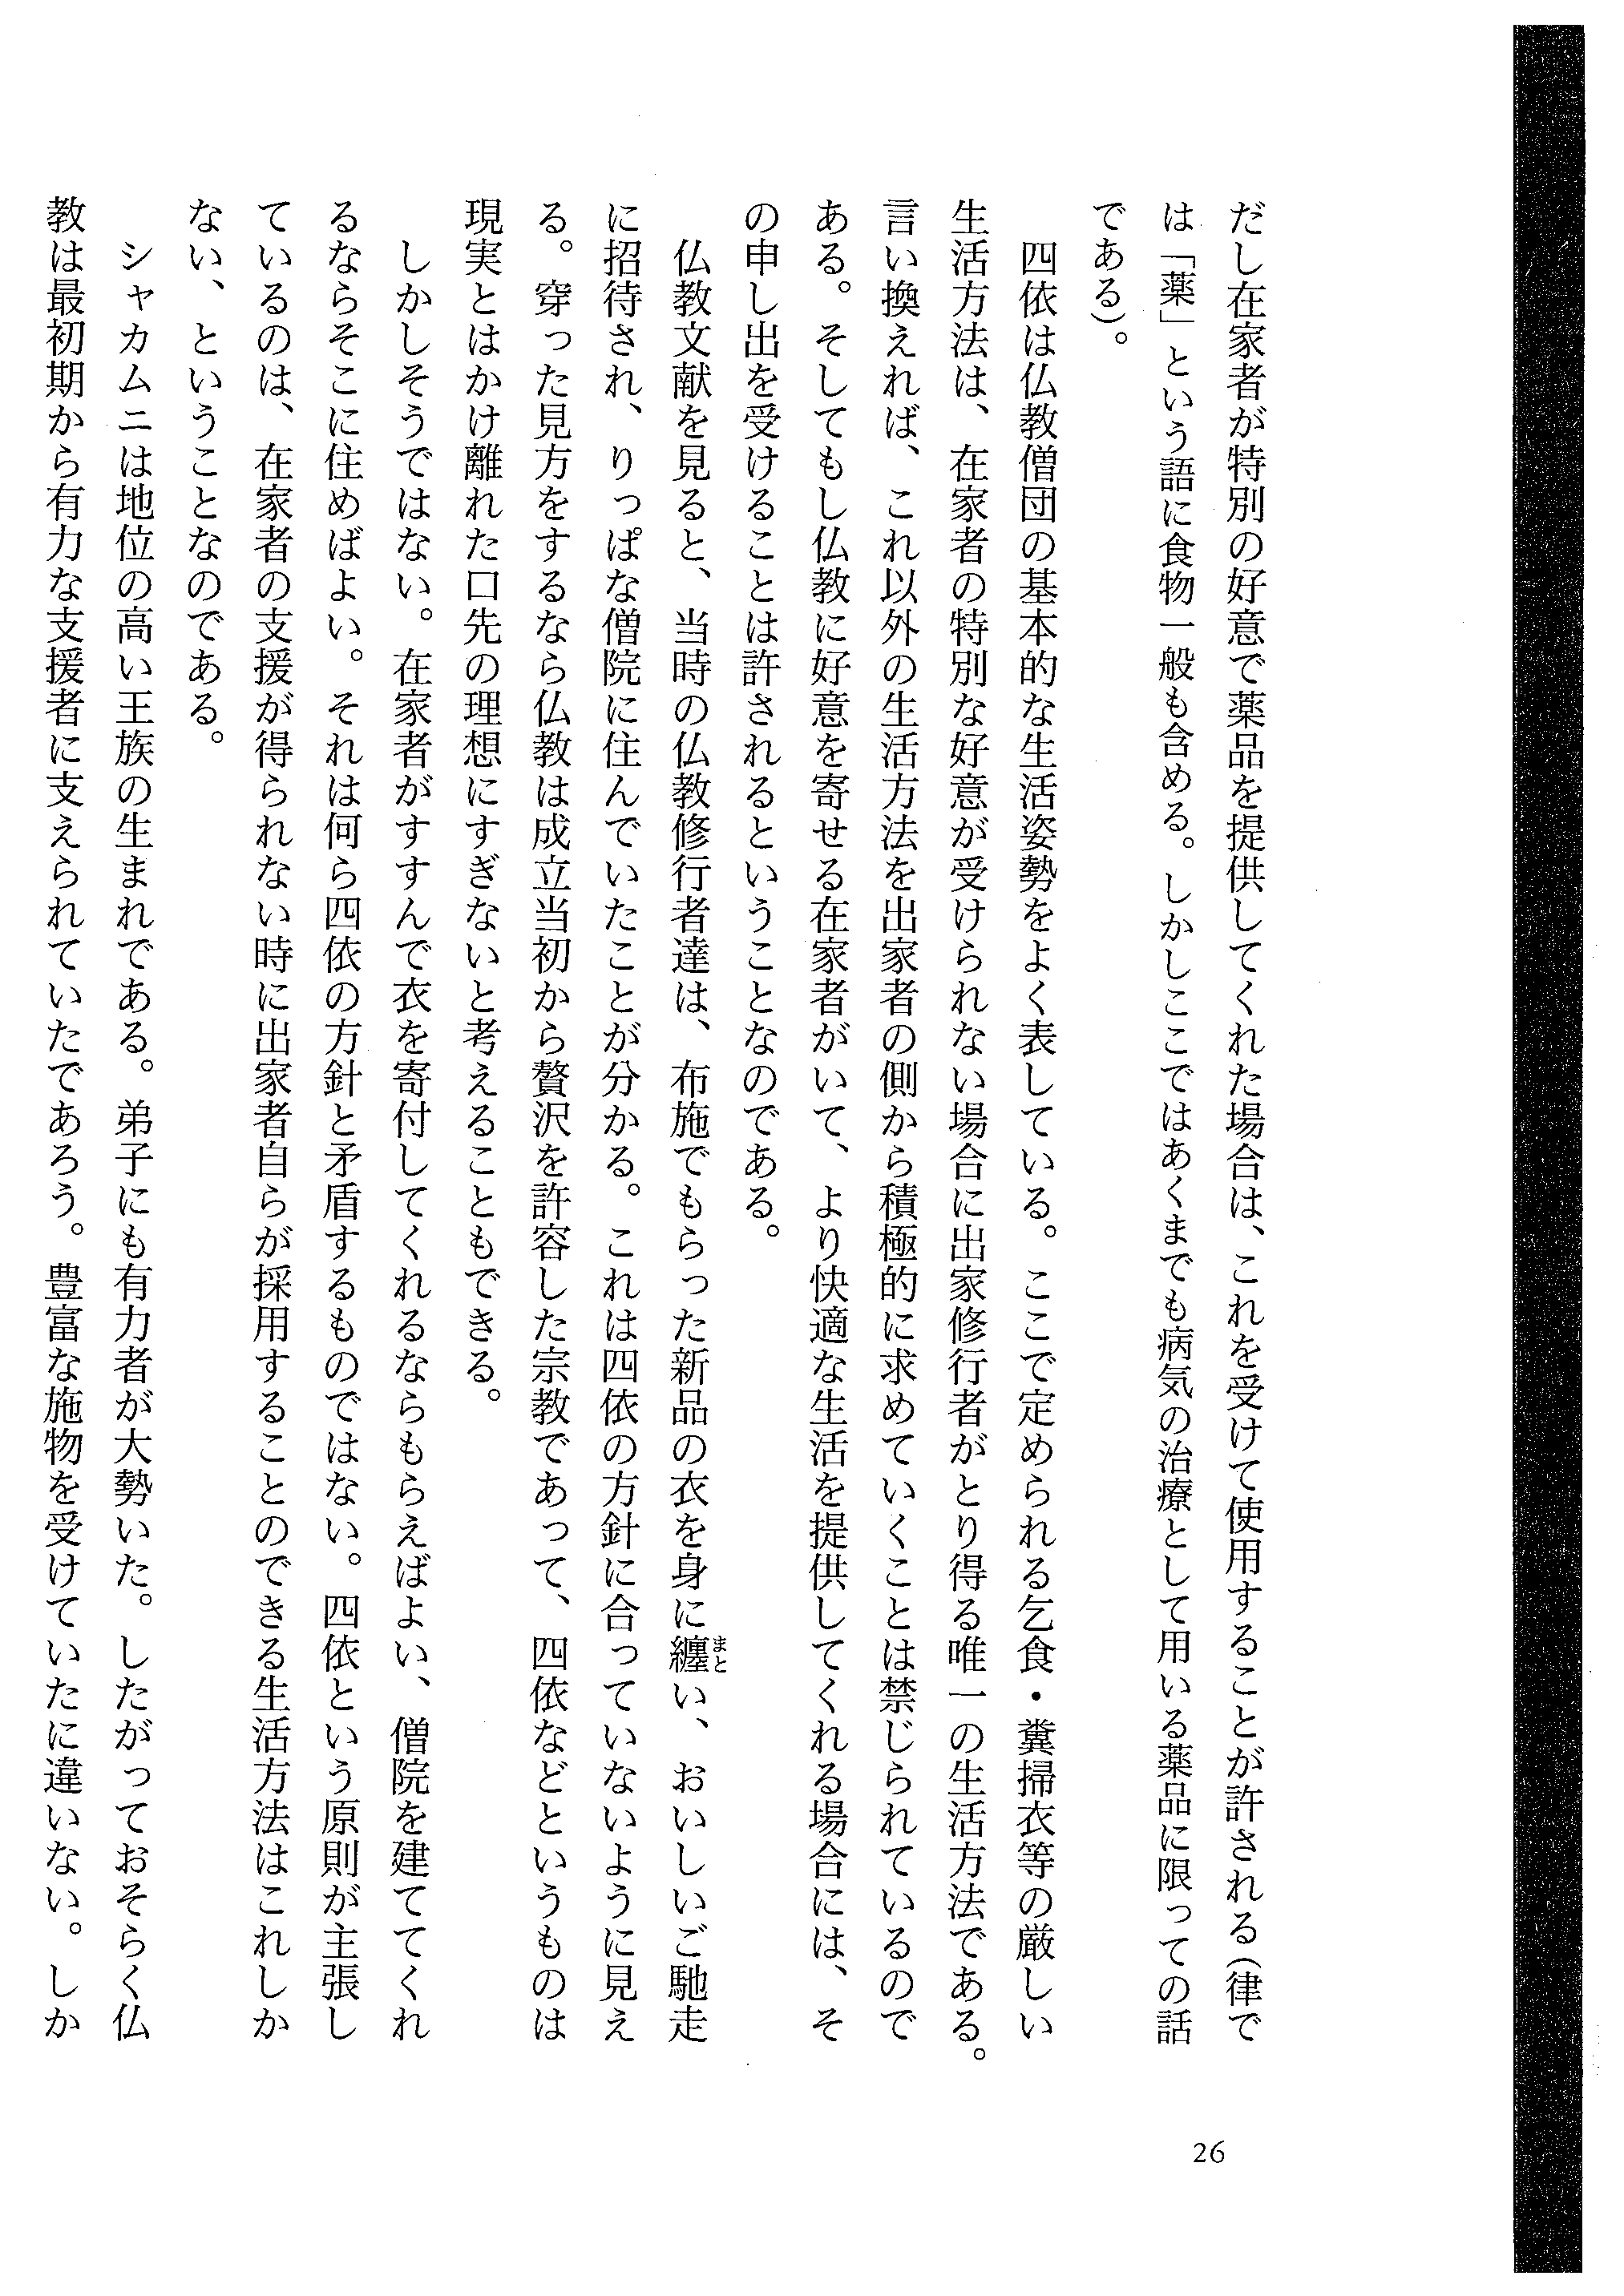 だし在家者が特別の好意で薬品を提供してくれた場合は、これを受けて使用することが許される（律で
は「薬」という語に食物一般も含める。しかしここではあくまでも病気の治療として用いる薬品に限っての話
である）。
四依は仏教僧団の基本的な生活姿勢をよく表している。ここで定められる乞食・糞掃衣等の厳しい
生活方法は、在家者の特別な好意が受けられない場合に出家修行者がとり得る唯一の生活方法である。
言い換えれば、これ以外の生活方法を出家者の側から積極的に求めていくことは禁じられているので
ある。そしてもし仏教に好意を寄せる在家者がいて、より快適な生活を提供してくれる場合には、そ
の申し出を受けることは許されるということなのである。
仏教文献を見ると、当時の仏教修行者達は、布施でもらった新品の衣を身に纏い、おいしいご馳走
まと
に招待され、りっぱな僧院に住んでいたことが分かる。これは四依の方針に合っていないように見え
る。穿った見方をするなら仏教は成立当初から贅沢を許容した宗教であって、四依などというものは
現実とはかけ離れた口先の理想にすぎないと考えることもできる。
しかしそうではない。在家者がすすんで衣を寄付してくれるならもらえばよい、僧院を建ててくれ
るならそこに住めばよい。それは何ら四依の方針と矛盾するものではない。四依という原則が主張し
ているのは、在家者の支援が得られない時に出家者自らが採用することのできる生活方法はこれしか
ない、ということなのである。
シャカムニは地位の高い王族の生まれである。弟子にも有力者が大勢いた。したがっておそらく仏
教は最初期から有力な支援者に支えられていたであろう。豊富な施物を受けていたに違いない。しか
26